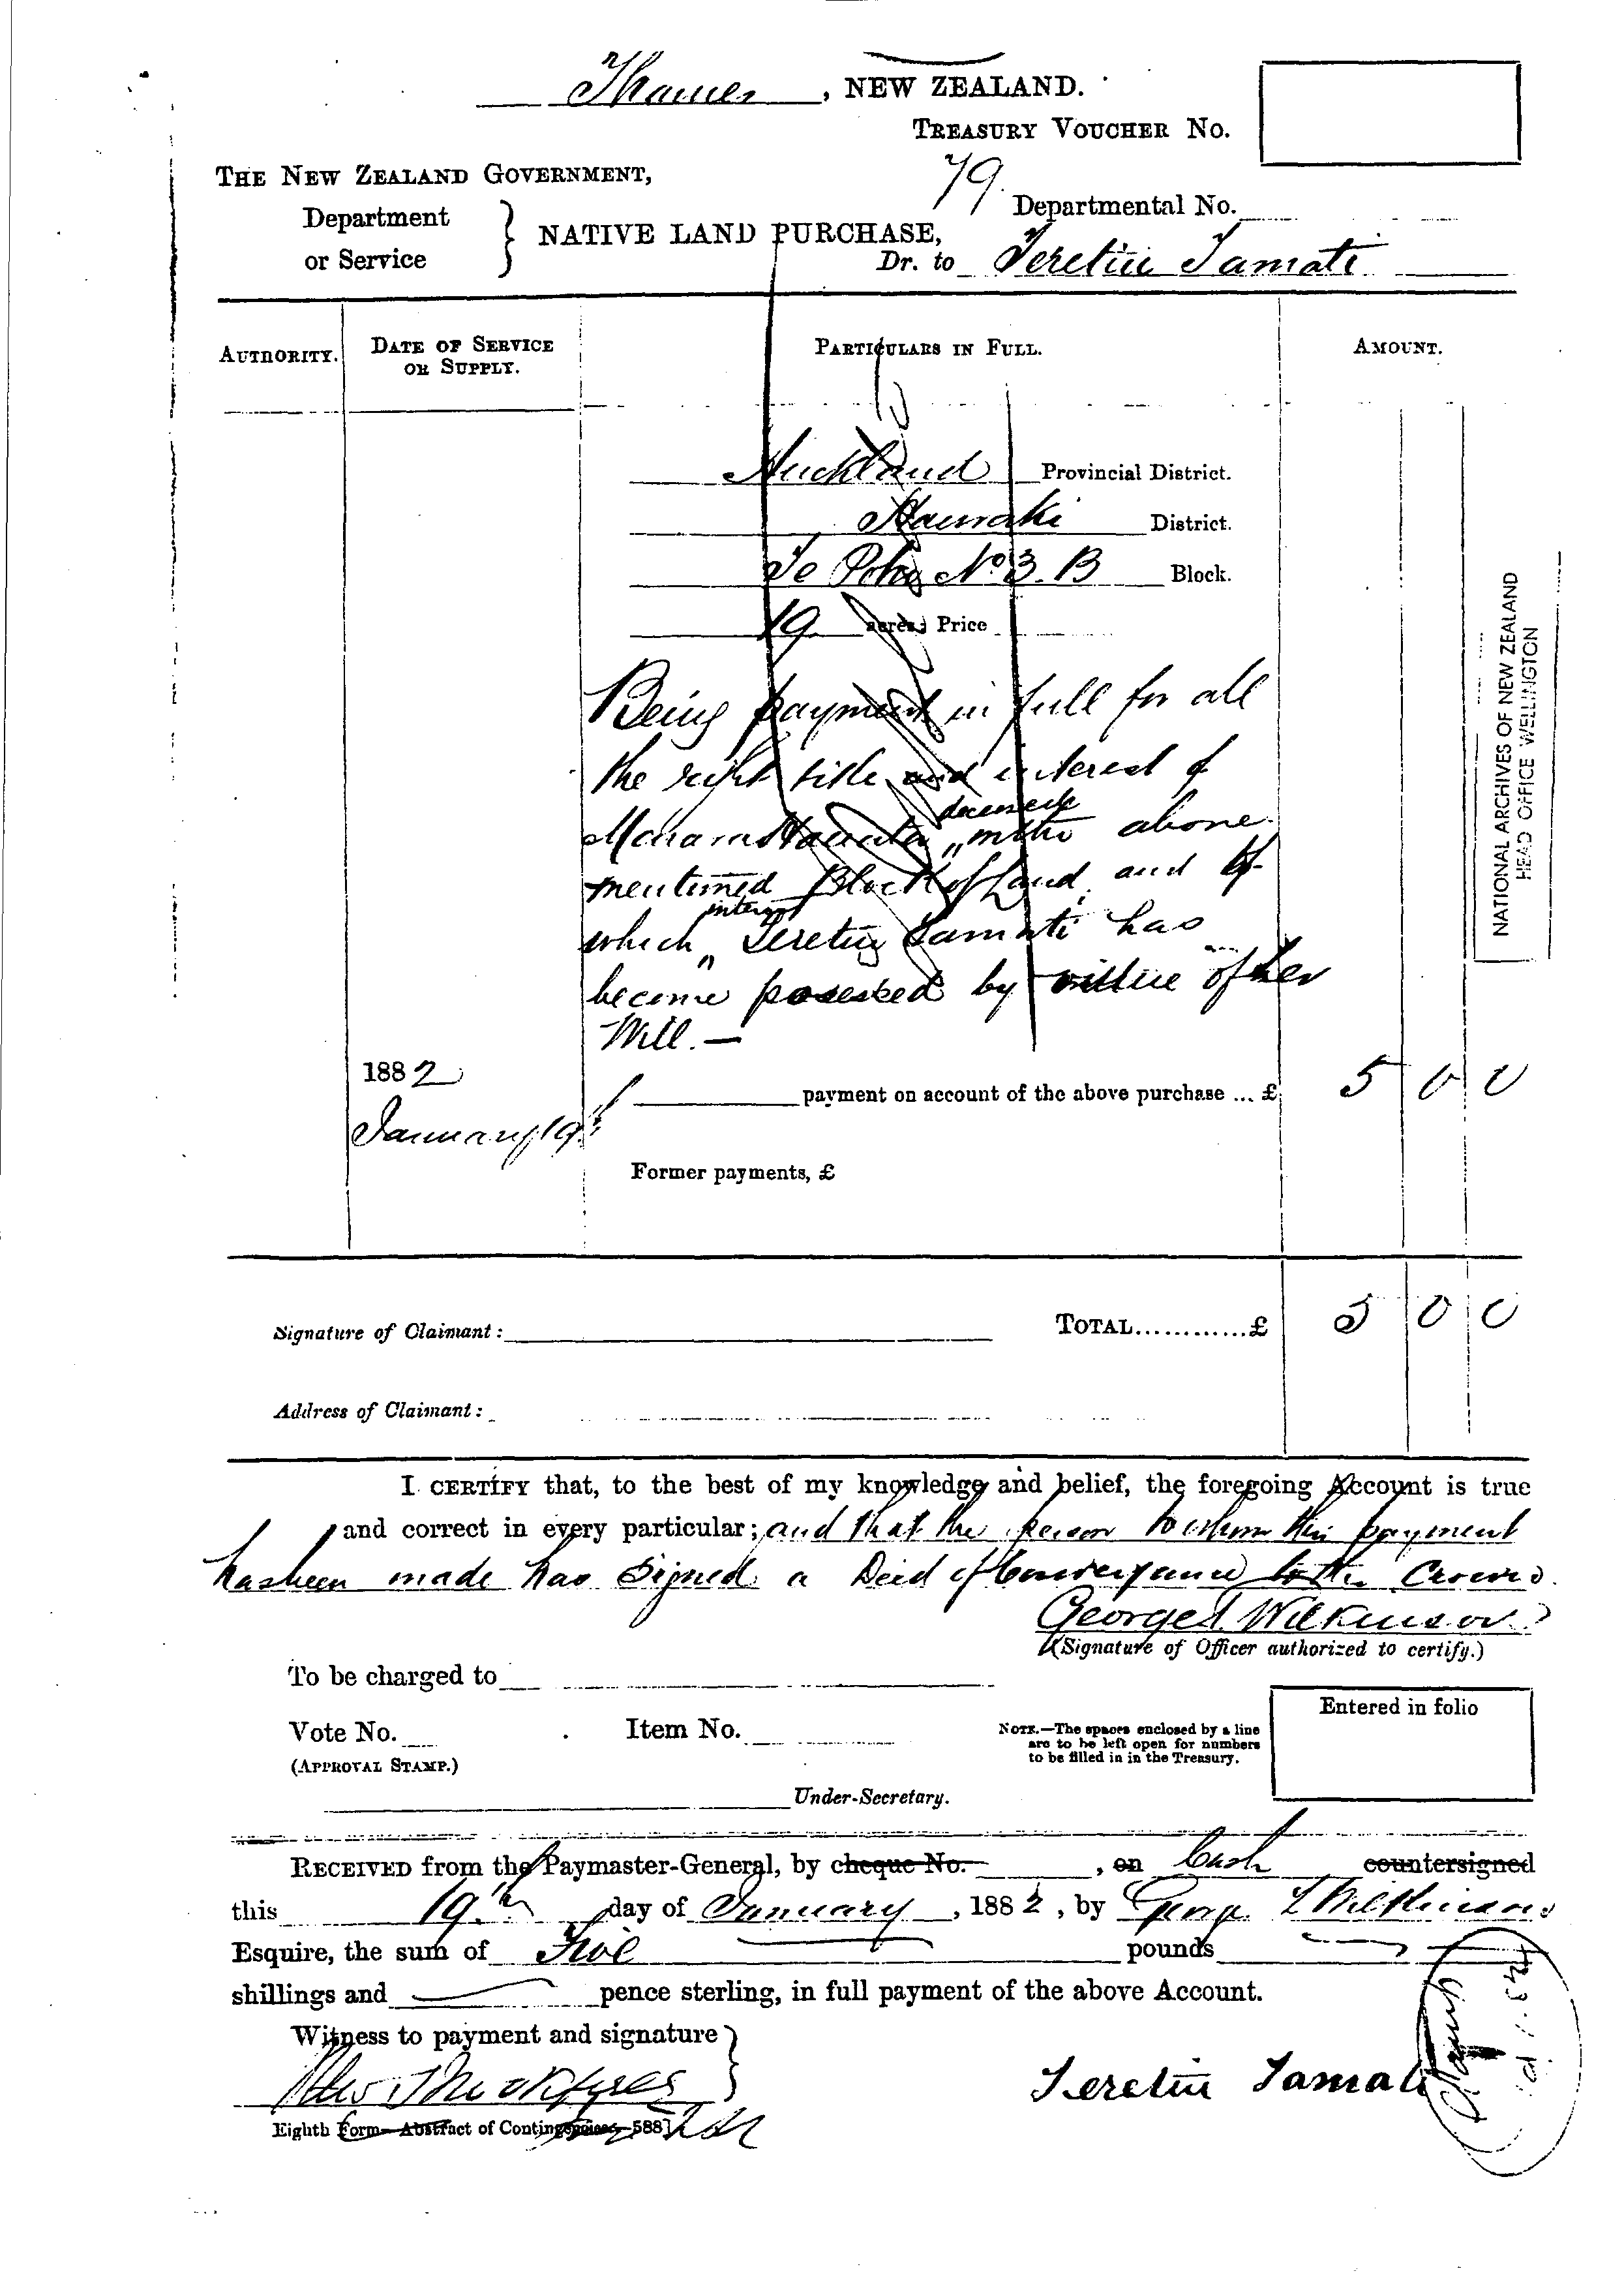 Thames, NEW ZEALAND.
TREASURY VOUCHER No.
THE NEW ZEALAND GOVERNMENT,
79.
Departmental No.
Department
or Service
NATIVE LAND PURCHASE,
Dr. to Teretiu Tamati
AUTHORITY.
DATE OF SERVICE
OR SUPPLY.
PARTICULARS IN FULL.
AMOUNT.
Auckland Provincial District.
Hauraki District.
Te No 3 B Block.
19 acres; Price
Being payment in full for all
the right title and interest of
deceased
" in the above
mentioned Block of Land, and of
interest
which " Teretiu Tamati has
become possessed by virtue of her
Will. —
1882
January 19th
payment on account of the above purchase ... £ 5 0 0
Former payments, £
Signature of Claimant:
TOTAL............£ 5 0 0
Address of Claimant:
I CERTIFY that, to the best of my knowledge and belief, the foregoing Account is true
and correct in every particular; and that the person to whom this payment
has been made has signed a Deed of Conveyance to the Crown.
George T Wilkinson
(Signature of Officer authorized to certify.)
To be charged to
Vote No.
Item No.
(APPROVAL STAMP.)
NOTE.—The spaces enclosed by a line
are to be left open for numbers
to be filled in in the Treasury.
Entered in folio
Under-Secretary.
RECEIVED from the Paymaster-General, by cheque No. , on Cash countersigned
this 19th day of January, 1882, by George T Wilkinson
Esquire, the sum of Five pounds
shillings and pence sterling, in full payment of the above Account.
Witness to payment and signature
Teretiu Tamati
Stamp
Eighth Form—Abstract of Contingencies—588]
NATIONAL ARCHIVES OF NEW ZEALAND
HEAD OFFICE WELLINGTON